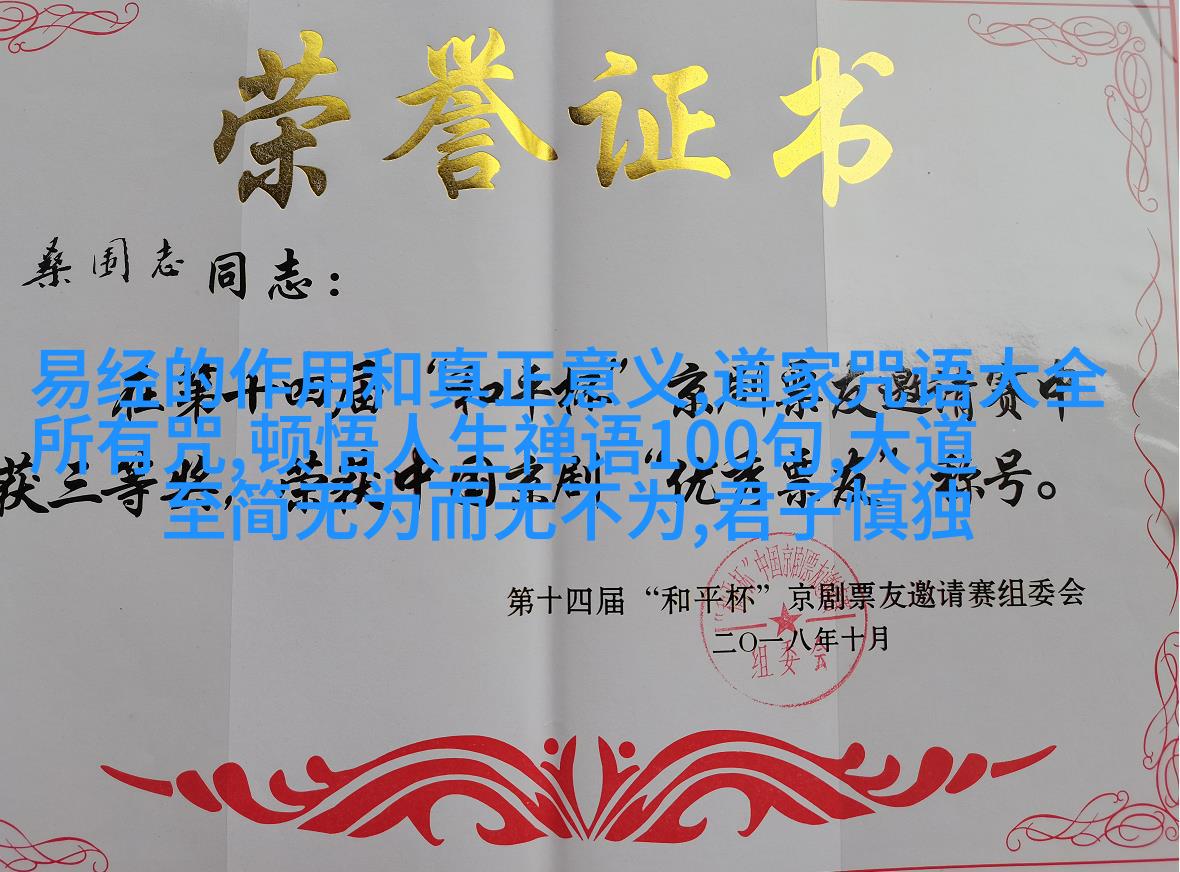 荣誉证书
桑国志同志：
易经的作用和真正意义,道家咒语大全
在第十四届“和平杯”京剧票友邀请赛中
所有咒,顿悟人生禅语100句,大道
获三等奖，荣获中国京剧“优秀票友”称号。
至简无为而无不为,君子慎独
第十四届“和平杯”京剧票友邀请赛组委会
二〇一八年十月
组委会